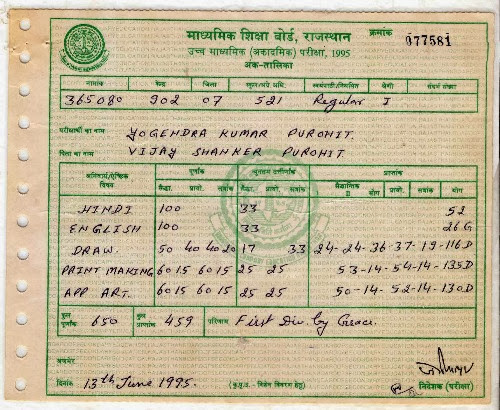 माध्यमिक शिक्षा बोर्ड, राजस्थान
क्रमांक 077581
उच्च माध्यमिक (अकादमिक) परीक्षा, 1995
अंक-तालिका
नामांक केन्द्र जिला स्वयंपाठी/नियमित श्रेणी संदर्भ संख्या
365080 902 07 521 Regular I
परीक्षार्थी का नाम YOGENDRA KUMAR PUROHIT.
पिता का नाम VIJAY SHANKER PUROHIT.
अनिवार्य/ऐच्छिक विषय पूर्णांक न्यूनतम उत्तीर्णांक प्राप्तांक
सैद्धा. प्रायो. सत्रांक सैद्धा. प्रायो. सत्रांक सैद्धान्तिक II योग प्रायो. सत्रांक योग
HINDI 100 33 52
ENGLISH 100 33 26 G
DRAW. 50 40 40 20 17 33 24-24-36-37-19-116D
PRINT MAKING 60 15 60 15 25 25 53-14-54-14-135D
APP ART. 60 15 60 15 25 25 50-14-52-14-130D
कुल पूर्णांक 650 कुल प्राप्तांक 459 परिणाम First Div. by Grace.
अजमेर
दिनांक 13th June 1995. (कृ.पृ.उ. - विशेष विवरण हेतु) निदेशक (परीक्षा)